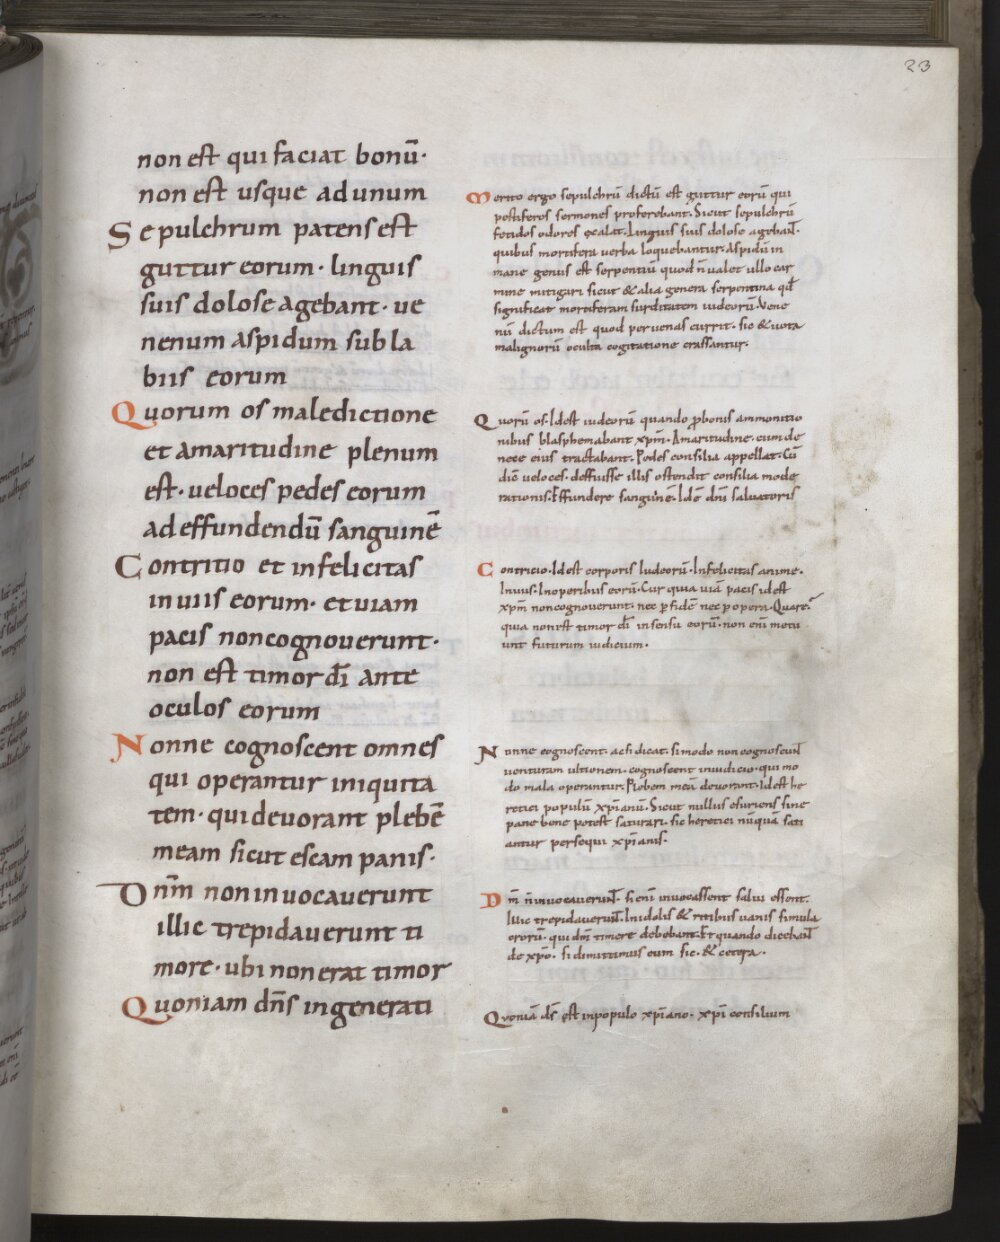 23
non est qui faciat bonū·
non est usque ad unum
Sepulchrum patens est
guttur eorum· linguis
suis dolose agebant· ue
nenum aspidum sub la
biis eorum
Quorum os maledictione
et amaritudine plenum
est· ueloces pedes eorum
ad effundendū sanguinē
Contritio et infelicitas
in uiis eorum· et uiam
pacis non cognouerunt·
non est timor dī ante
oculos eorum
Nonne cognoscent omnes
qui operantur iniquita
tem· qui deuorant plebē
meam sicut escam panis·
Dnm̄ non inuocauerunt
illic trepidauerunt ti
more· ubi non erat timor
Quoniam dn̄s in generati
Merito ergo sepulchrū dictū est guttur eorū qui
pestiferos sermones proferebant. Sicut sepulchrū
fetidos odores exalat. Linguis suis dolose agebant̄.
quibus mortifera uerba loquebantur. Aspidū in
mane genus est serpentiū quod n̄ ualet ullo car
mine mitigari sicut & alia genera serpentina qd̄
significat mortiferam surditatem iudeorū. Vene
nū dictum est quod per uenas currit. sic & uota
malignorū occulta cogitatione crassantur·
Quorū os. Idest iudeorū quando ꝓ bonis ammonitio
nibus blasphemabant xp̄m. Amaritudine. cum de
nece eius tractabant. Pedes consilia appellat. Cū
diē ueloces. deffuisse illis ostendit consilia mode
rationis. Effundere sanguinē. Idē dn̄i saluatoris
Contricio. Idest corporis Iudeorū. Infelicitas anime.
In uiis. In operibus eorū. Cur quia uiā pacis idest
xp̄m non cognouerunt. nec ꝑ fidē nec ꝑ opera. Quare?
quia non est timor dī in sensu eorū. non enī metu
unt futurum iudicium.
Nonne cognoscent. ac si dicat. si modo non cognoscunt̄
uenturam ultionem. cognoscent in iudicio. qui mo
do mala operantur. Plebem meā deuorant. Idest he
retici populū xp̄ianū. Sicut nullus esuriens sine
pane bene potest saturari. sic heretici nūquā sati
antur persequi xp̄ianis.
Dn̄m n̄ inuocauerunt̄. si enī inuocassent salui essent.
Illic trepidauerunt̄. In idolis & ritibus uanis simula
crorū. qui dn̄m timere debebant. Et quando dicebant̄
de xp̄o. si dimittimus eum sic. & cetera.
Quoniā ds̄ est in populo xp̄iano. xp̄i consilium